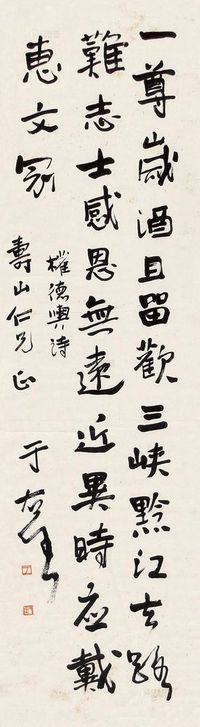 一尊歲酒且留歡三峽黔江去路
難志士感恩無遠近異時應戴
惠文冠
權德輿詩
壽山仁兄正
于右任